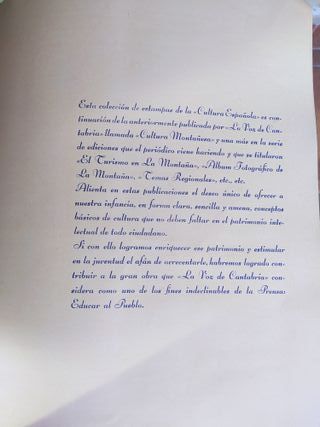 Esta colección de estampas de la «Cultura Española» es con-
tinuación de la anteriormente publicada por «La Voz de Can-
tabria» llamada «Cultura Montañesa» y una más en la serie
de ediciones que el periódico viene haciendo y que se titularon
«El Turismo en La Montaña», «Album Fotográfico de
La Montaña», «Temas Regionales», etc., etc.
Alienta en estas publicaciones el deseo único de ofrecer a
nuestra infancia, en forma clara, sencilla y amena, conceptos
básicos de cultura que no deben faltar en el patrimonio inte-
lectual de todo ciudadano.
Si con ello logramos enriquecer ese patrimonio y estimular
en la juventud el afán de acrecentarle, habremos logrado con-
tribuir a la gran obra que «La Voz de Cantabria» con-
sidera como uno de los fines indeclinables de la Prensa:
Educar al Pueblo.